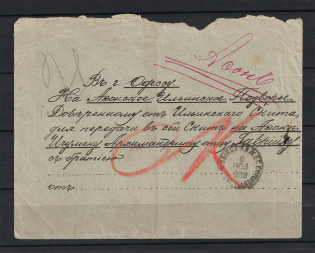 Аѳонъ
Въ г. Одессу
На Аѳонское Ильинское Подворье
Довѣренному отъ Ильинскаго Скита,
для передачи въ сей Скитъ на Аѳонъ
Игумену Архимандриту отцу Гавріилу
съ братіею
отъ